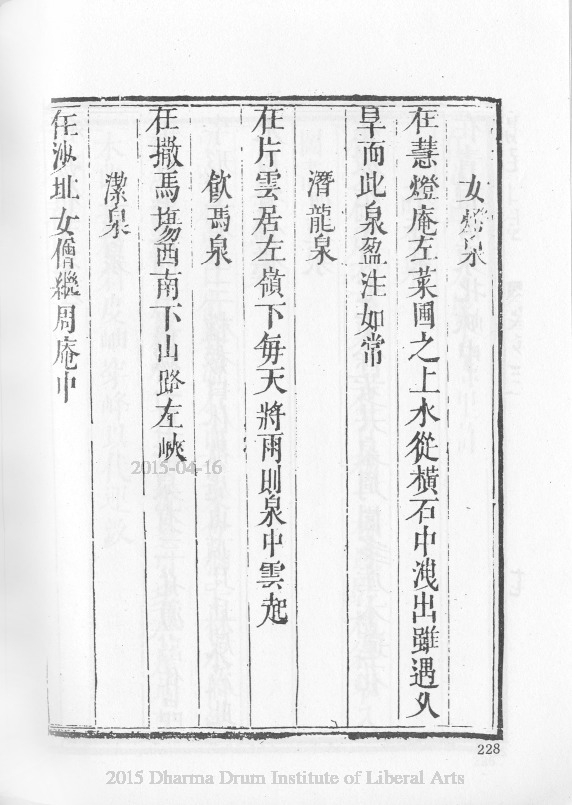 女鶯泉
在慧燈庵左菜圃之上水從横石中洩出雖遇久
旱而此泉盈注如常
潛龍泉
在片雲居左嶺下每天將雨則泉中雲起
飲馬泉
在撒馬塲西南下山路左峽
潔泉
在沙址女僧繼周庵中
2015-04-16
228
2015 Dharma Drum Institute of Liberal Arts